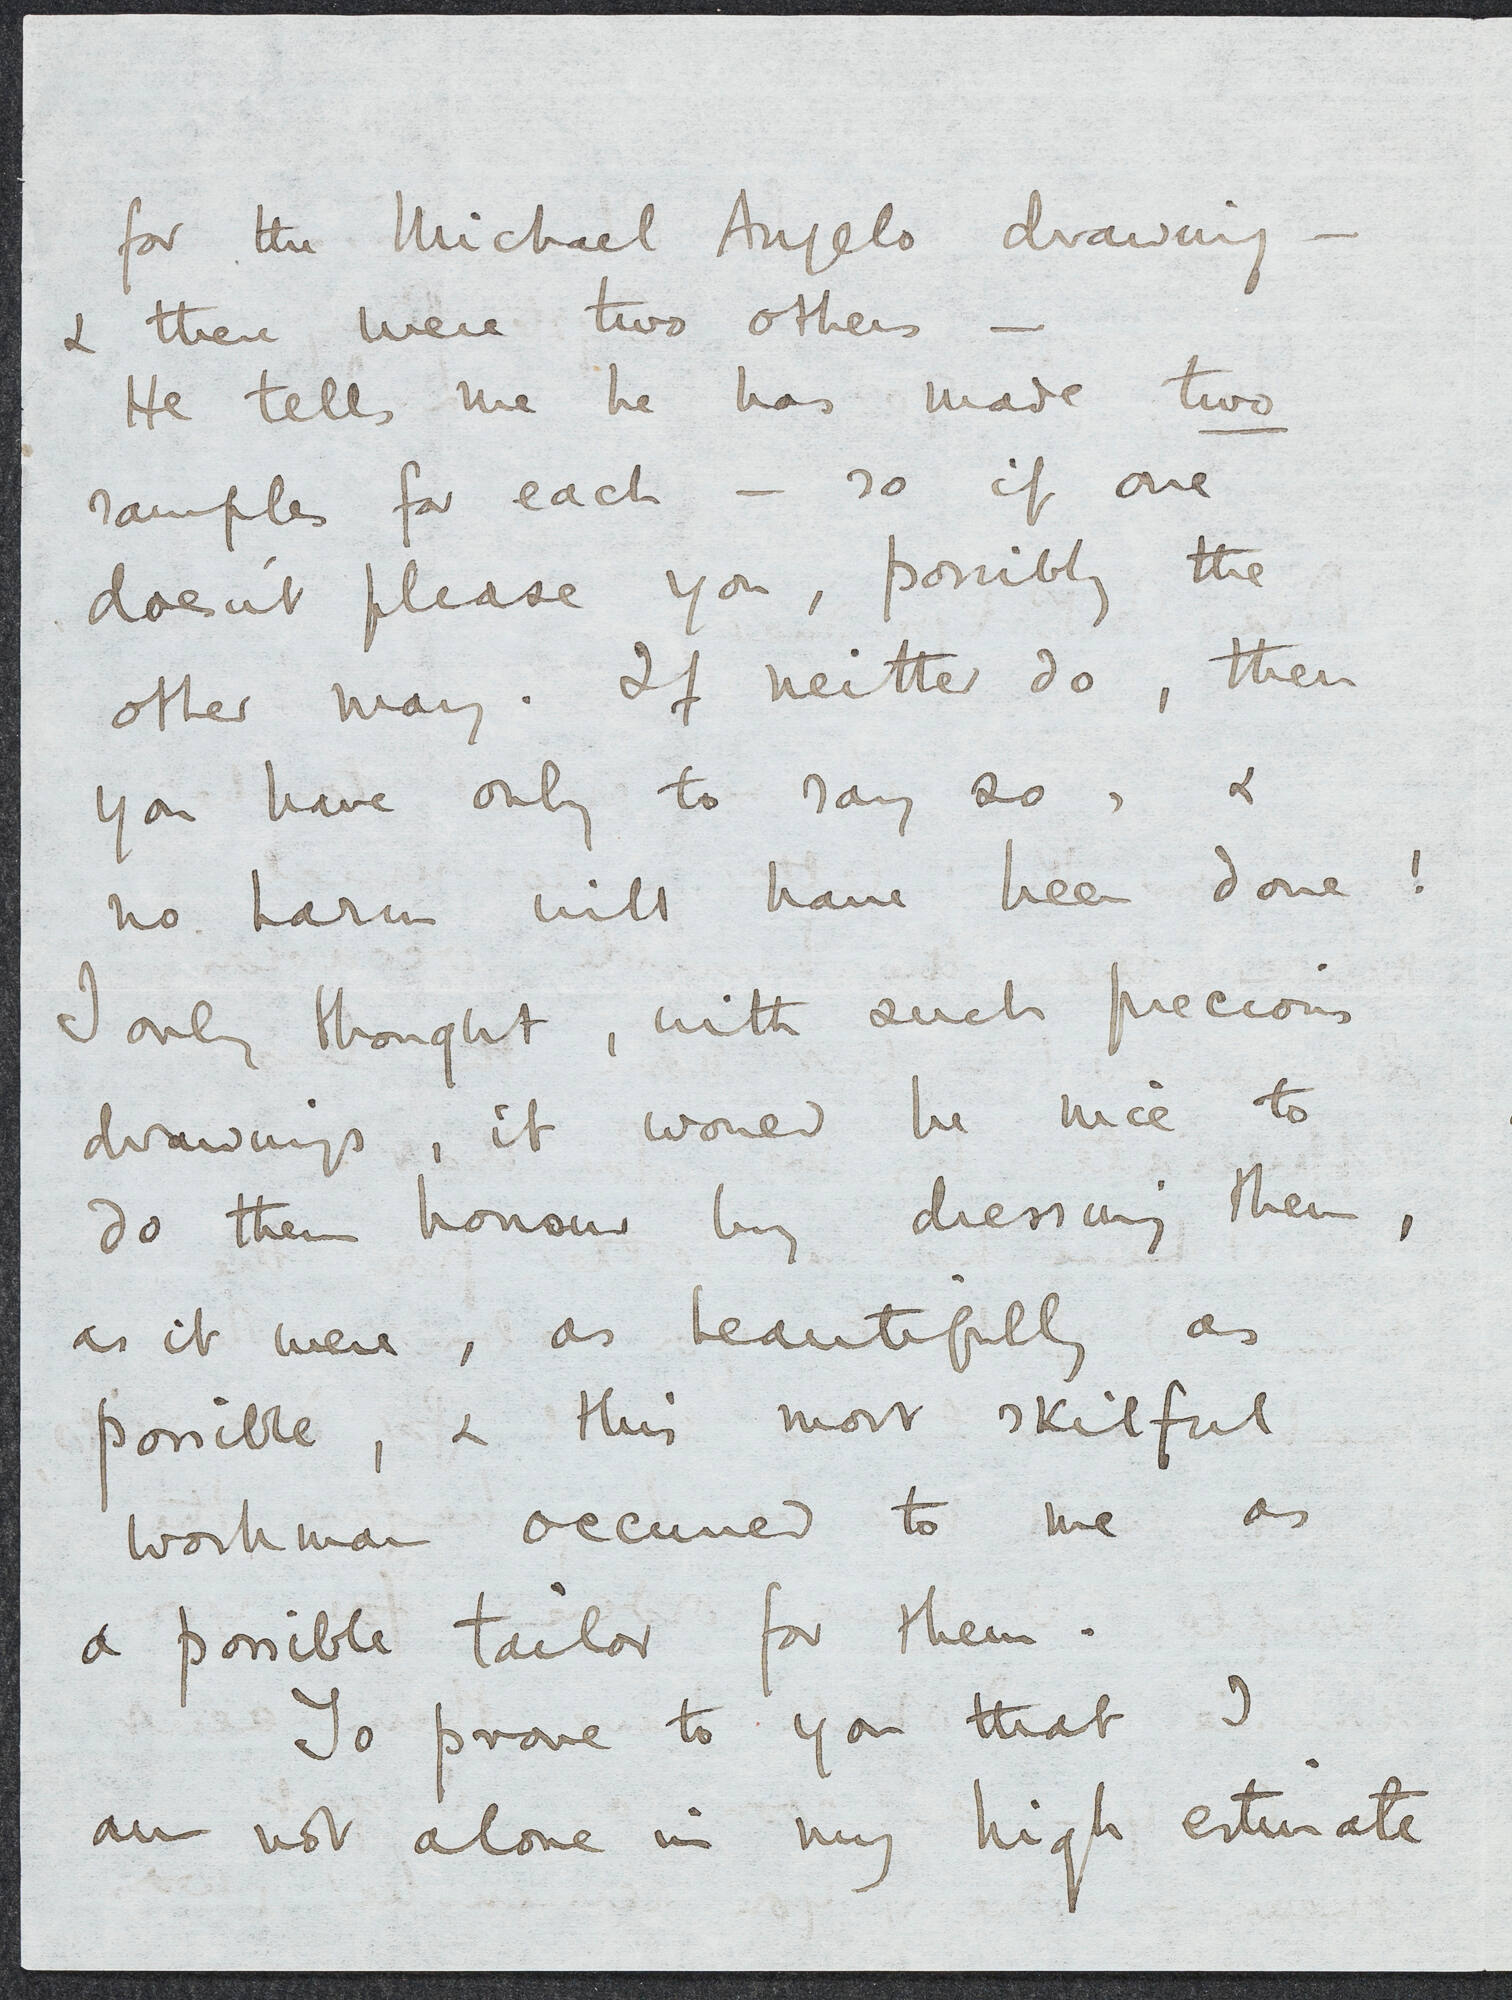 for the Michael Angelo drawing —
& there were two others —
He tells me he has made two
samples for each — so if one
doesn't please you, possibly the
other may. If neither do, then
you have only to say so, &
no harm will have been done!
I only thought, with such precious
drawings, it would be nice to
do them honour by dressing them,
as it were, as beautifully as
possible, & this most skilful
workman occurred to me as
a possible tailor for them.
To prove to you that I
am not alone in my high estimate